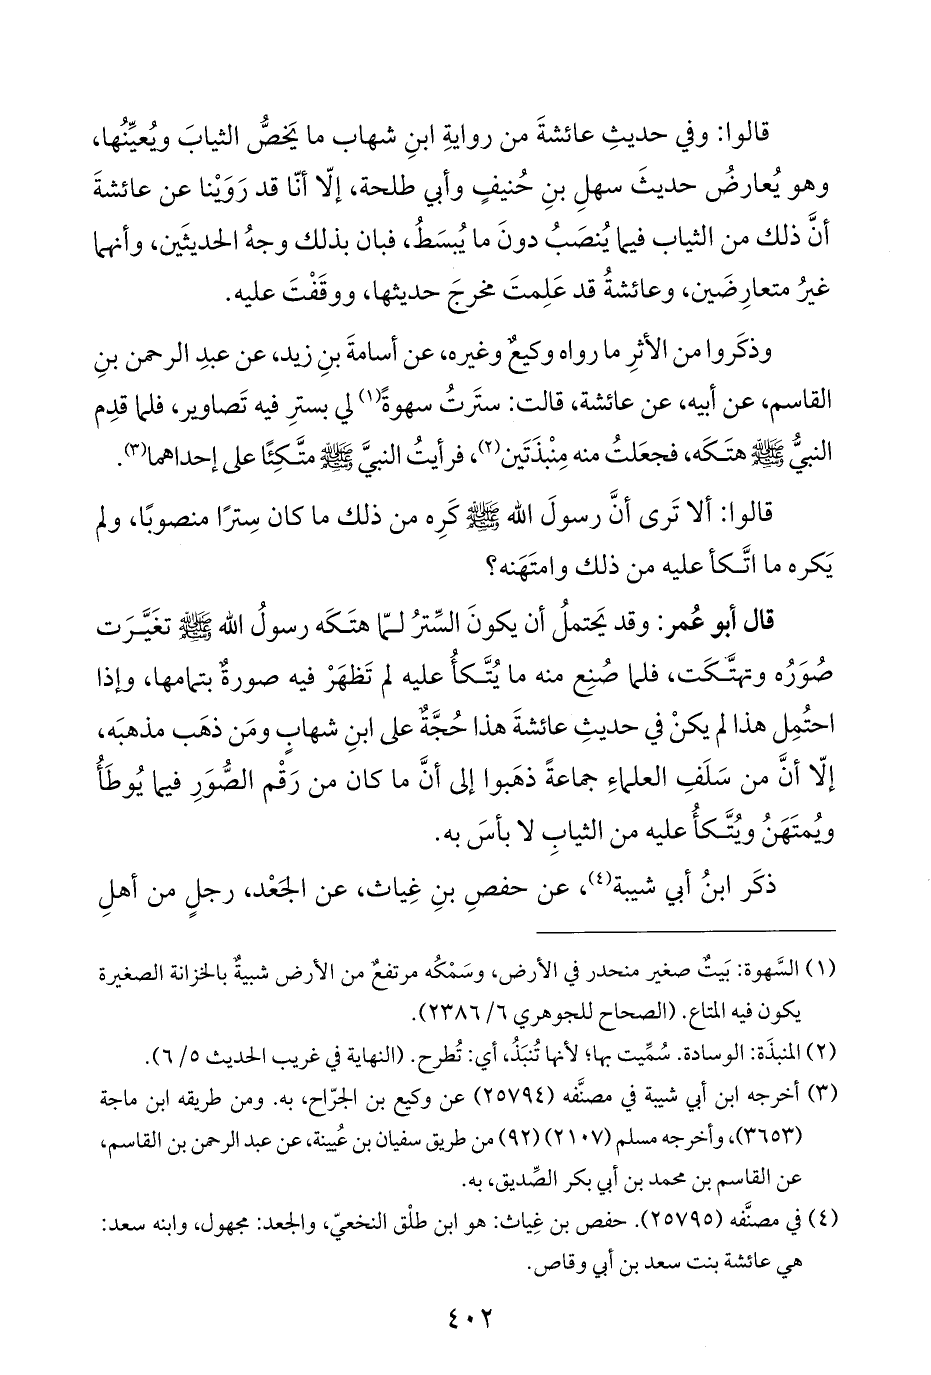 قالوا: وفي حديثِ عائشةَ من روايةِ ابنِ شهاب ما يَخصُّ الثيابَ ويُعيِّنُها،
وهو يُعارضُ حديثَ سهلِ بنِ حُنيفٍ وأبي طلحة، إلّا أنّا قد رَوَيْنا عن عائشةَ
أنَّ ذلك من الثياب فيما يُنصَبُ دونَ ما يُبسَطُ، فبان بذلك وجهُ الحديثَين، وأنهما
غيرُ متعارضَين، وعائشةُ قد عَلِمتَ مخرجَ حديثها، ووقَفْتَ عليه.
وذكَروا من الأثرِ ما رواه وكيعٌ وغيره، عن أسامةَ بنِ زيد، عن عبدِ الرحمن بنِ
القاسم، عن أبيه، عن عائشة، قالت: ستَرتُ سهوةً(١) لي بسترٍ فيه تَصاوير، فلما قدِم
النبيُّ ﷺ هتَكَه، فجعَلتُ منه مِنْبذَتَين(٢)، فرأيتُ النبيَّ ﷺ متَّكِئًا على إحداهما(٣).
قالوا: ألا تَرى أنَّ رسولَ الله ﷺ كَرِه من ذلك ما كان سِترًا منصوبًا، ولم
يَكره ما اتَّكأ عليه من ذلك وامتَهَنه؟
قال أبو عُمر: وقد يَحتملُ أن يكونَ السِّترُ لـمّا هتَكَه رسولُ الله ﷺ تغيَّرَت
صُوَرُه وتهتَّكَت، فلما صُنِع منه ما يُتَّكأُ عليه لم تَظهَرْ فيه صورةٌ بتمامِها، وإذا
احتُمِل هذا لم يكنْ في حديثِ عائشةَ هذا حُجَّةٌ على ابنِ شهابٍ ومَن ذهَب مذهبَه،
إلّا أنَّ من سَلَفِ العلماءِ جماعةً ذهَبوا إلى أنَّ ما كان من رَقْم الصُّوَرِ فيما يُوطَأُ
ويُمتَهَنُ ويُتَّكأُ عليه من الثيابِ لا بأسَ به.
ذكَر ابنُ أبي شيبة(٤)، عن حفصِ بنِ غِياث، عن الجَعْد، رجلٍ من أهلِ
(١) السَّهوة: بَيتٌ صغير منحدر في الأرض، وسَمْكُه مرتفعٌ من الأرض شبيهٌ بالخزانة الصغيرة
يكون فيه المتاع. (الصحاح للجوهري ٦/ ٢٣٨٦).
(٢) المنبذَة: الوسادة. سُمِّيت بها؛ لأنها تُنبَذُ، أي: تُطرح. (النهاية في غريب الحديث ٥/ ٦).
(٣) أخرجه ابن أبي شيبة في مصنَّفه (٢٥٧٩٤) عن وكيع بن الجرّاح، به. ومن طريقه ابن ماجة
(٣٦٥٣)، وأخرجه مسلم (٢١٠٧) (٩٢) من طريق سفيان بن عُيينة، عن عبد الرحمن بن القاسم،
عن القاسم بن محمد بن أبي بكر الصِّديق، به.
(٤) في مصنَّفه (٢٥٧٩٥). حفص بن غِياث: هو ابن طلْق النخعيّ، والجعد: مجهول، وابنه سعد:
هي عائشة بنت سعد بن أبي وقاص.
٤٠٢